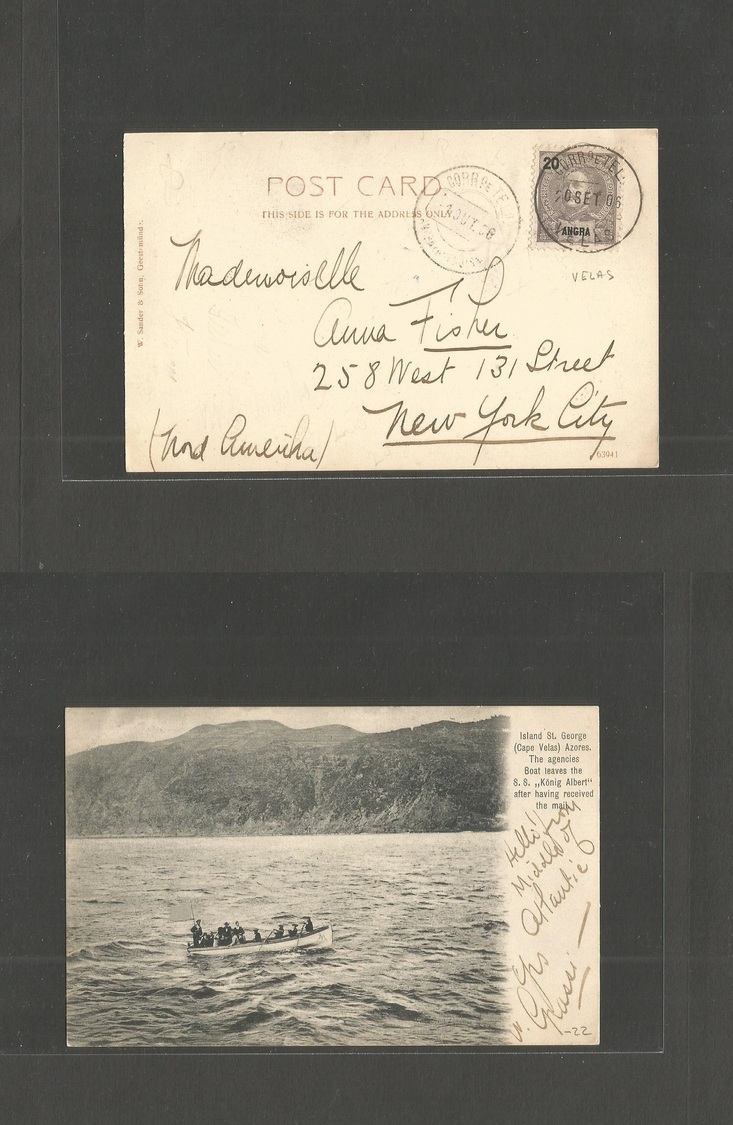 POST CARD.
THIS SIDE IS FOR THE ADDRESS ONLY.
20
ANGRA
CORRO E TEL
20 SET 06
VELAS
VELAS
W. Sander & Sohn, Geestemünde.
Mademoiselle
Anna Fisher
258 West 131 Street
New York City
(Nord Amerika)
63941
Island St. George
(Cape Velas) Azores.
The agencies
Boat leaves the
S. S. „König Albert"
after having received
the mail
Hello! from
Middle of
Atlantic
-22